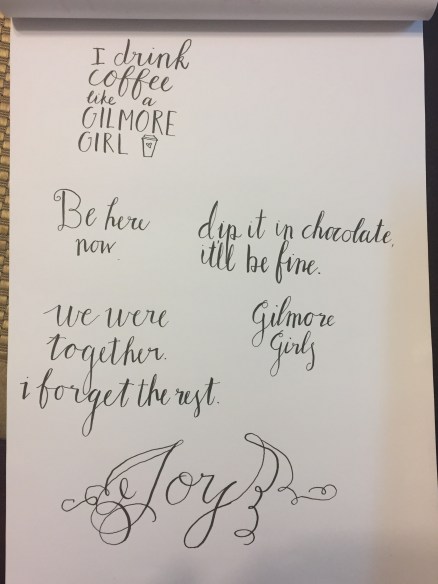 I drink
coffee
like a
GILMORE
GIRL
Be here
now.
dip it in chocolate,
it'll be fine.
we were
together.
i forget the rest.
Gilmore
Girls
Joy